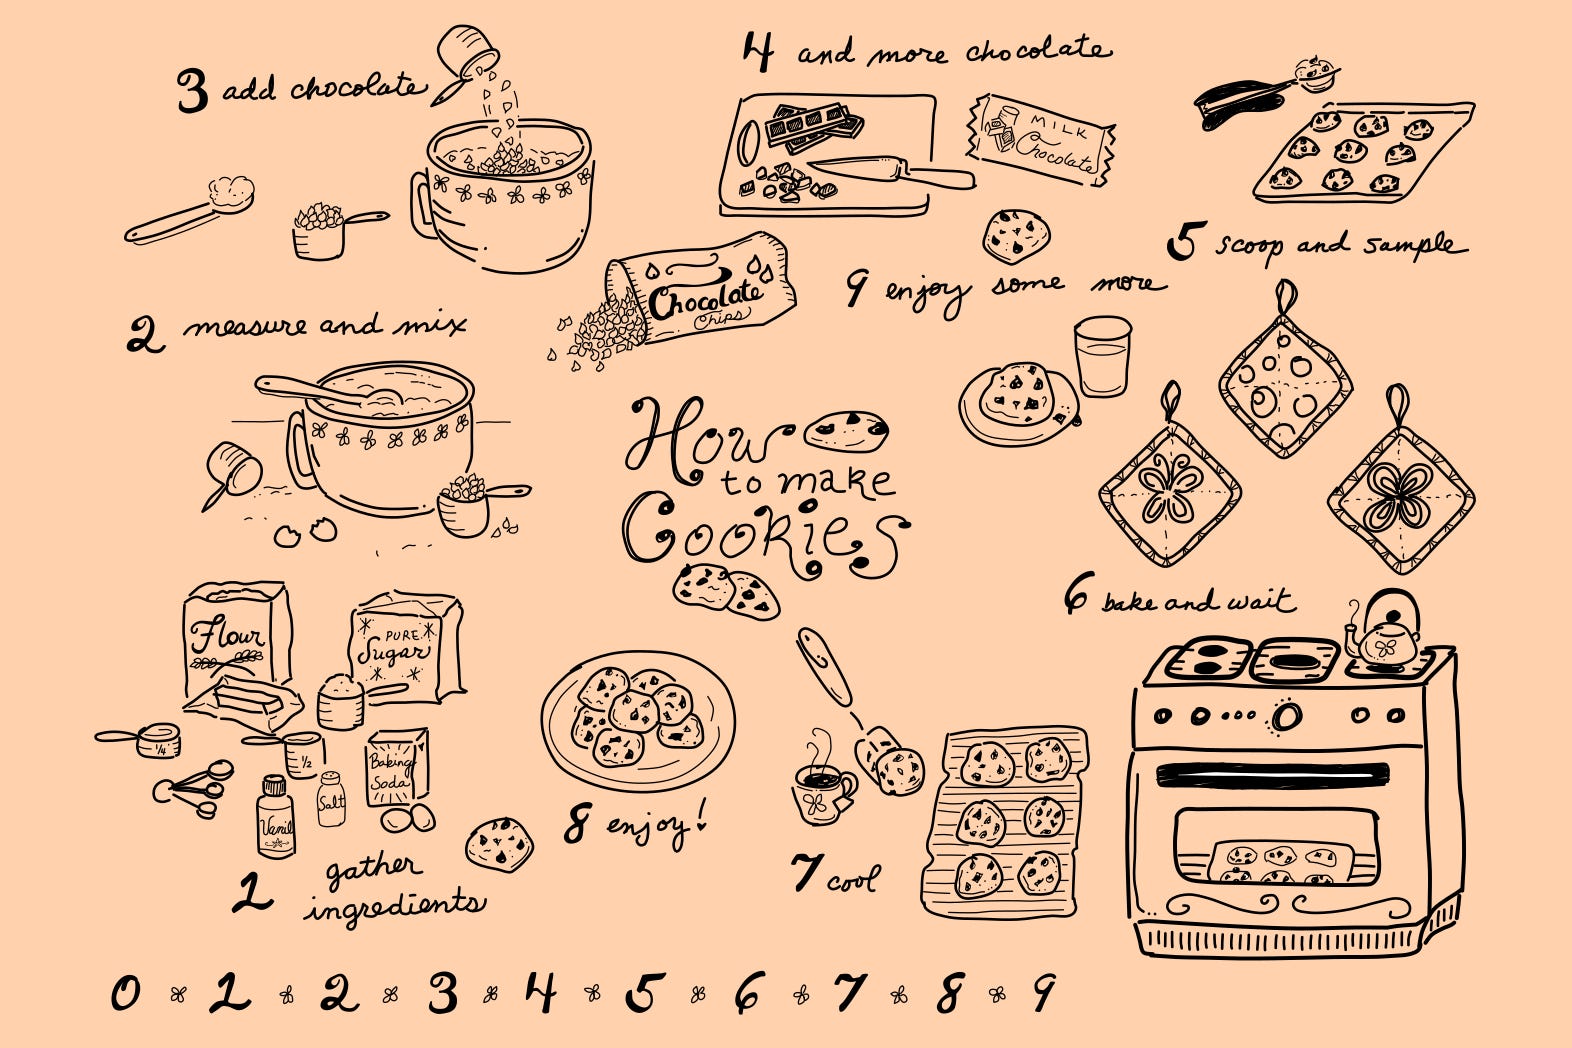 How
to make
Cookies
1 gather
ingredients
Flour
PURE
Sugar
1/4
1/2
Baking
Soda
Salt
Vanil
2 measure and mix
3 add chocolate
Chocolate
Chips
4 and more chocolate
MILK
Chocolate
5 scoop and sample
6 bake and wait
7 cool
8 enjoy!
9 enjoy some more
0 1 2 3 4 5 6 7 8 9